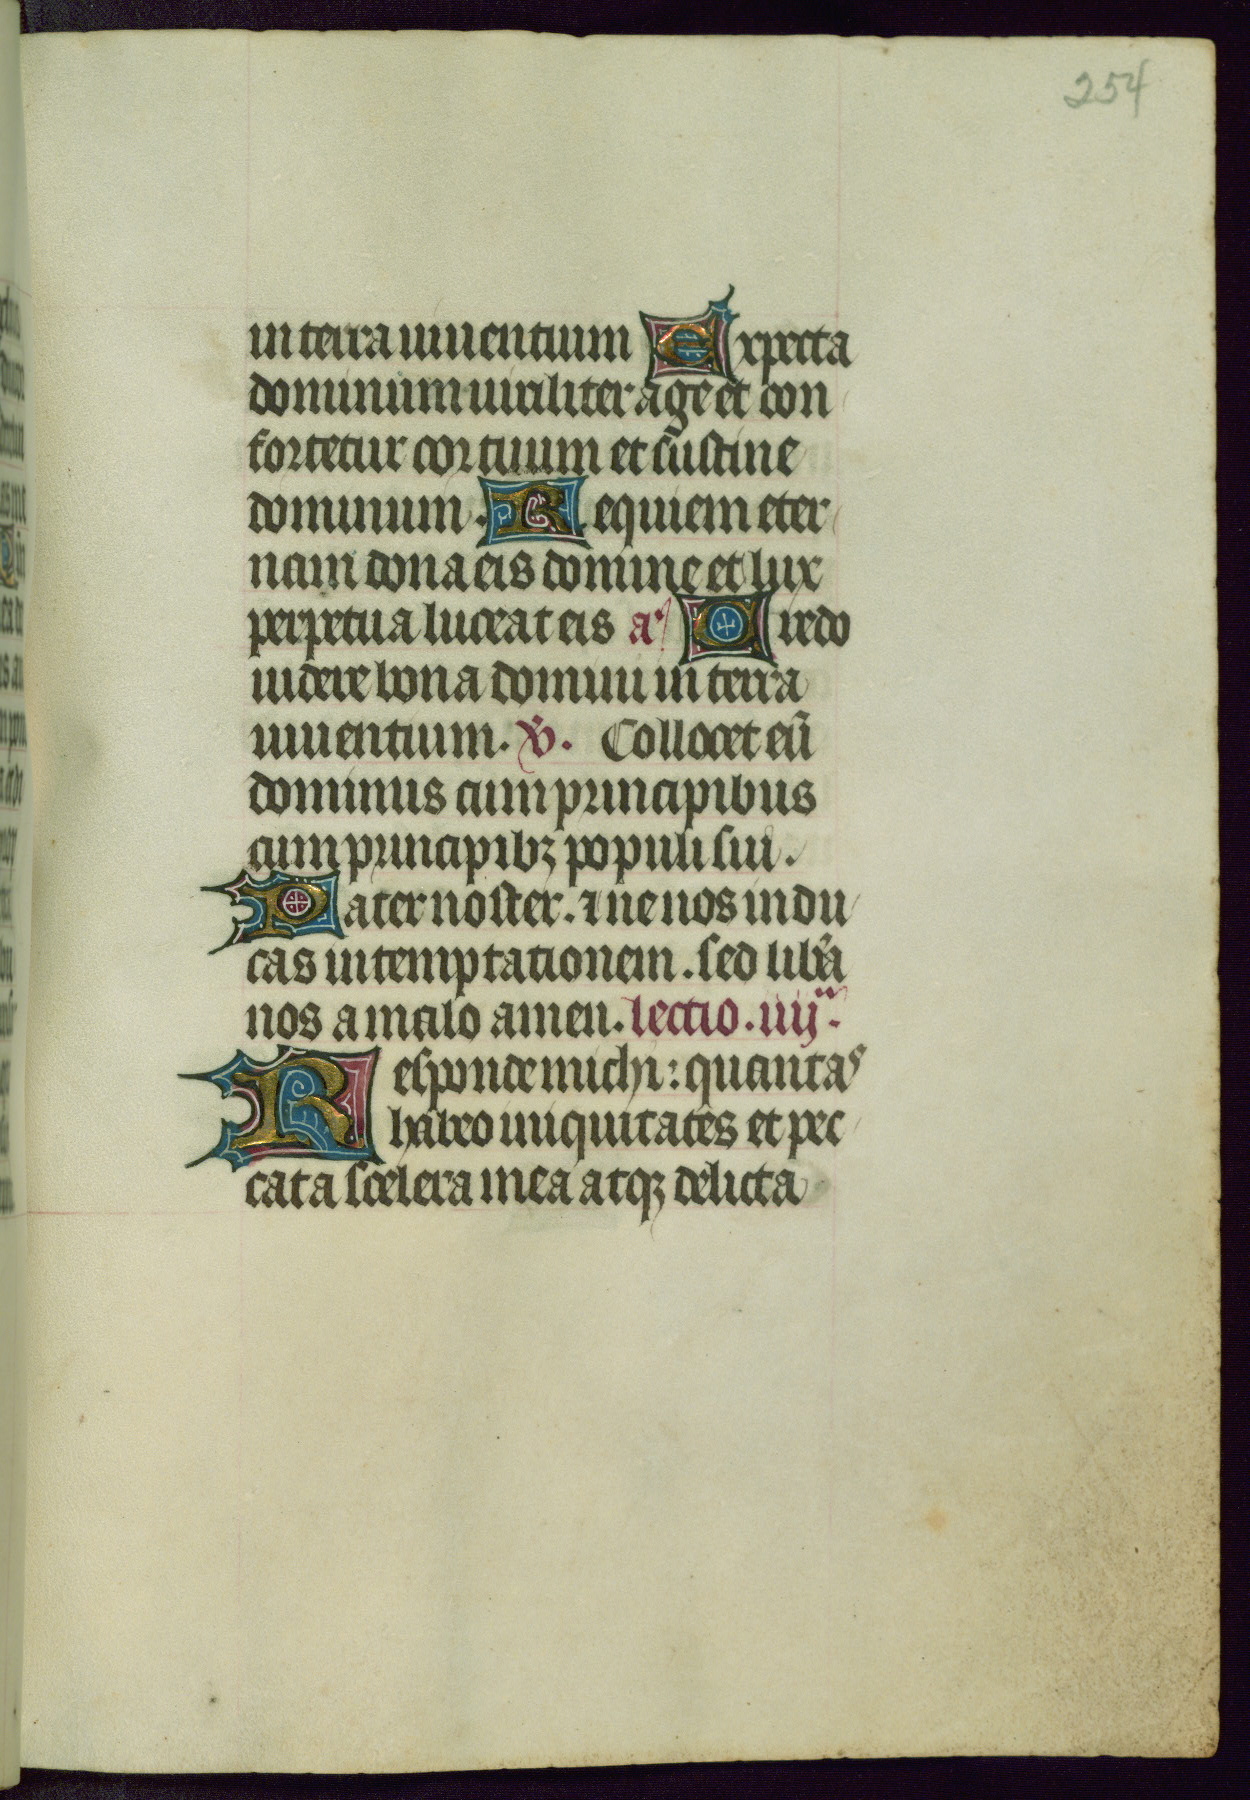 254
in terra uiuentium Expecta
dominum uiriliter age et con
fortetur cor tuum et sustine
dominum. Requiem eter
nam dona eis domine et lux
perpetua luceat eis a. Credo
uidere bona domini in terra
uiuentium. V. Collocet eū
dominus cum principibus
cum principibꝫ populi sui.
Pater noster. ⁊ ne nos indu
cas in temptationem. sed liba
nos a malo amen. lectio. iiij.
Responde michi: quantas
habeo iniquitates et pec
cata scelera mea atqꝫ delicta